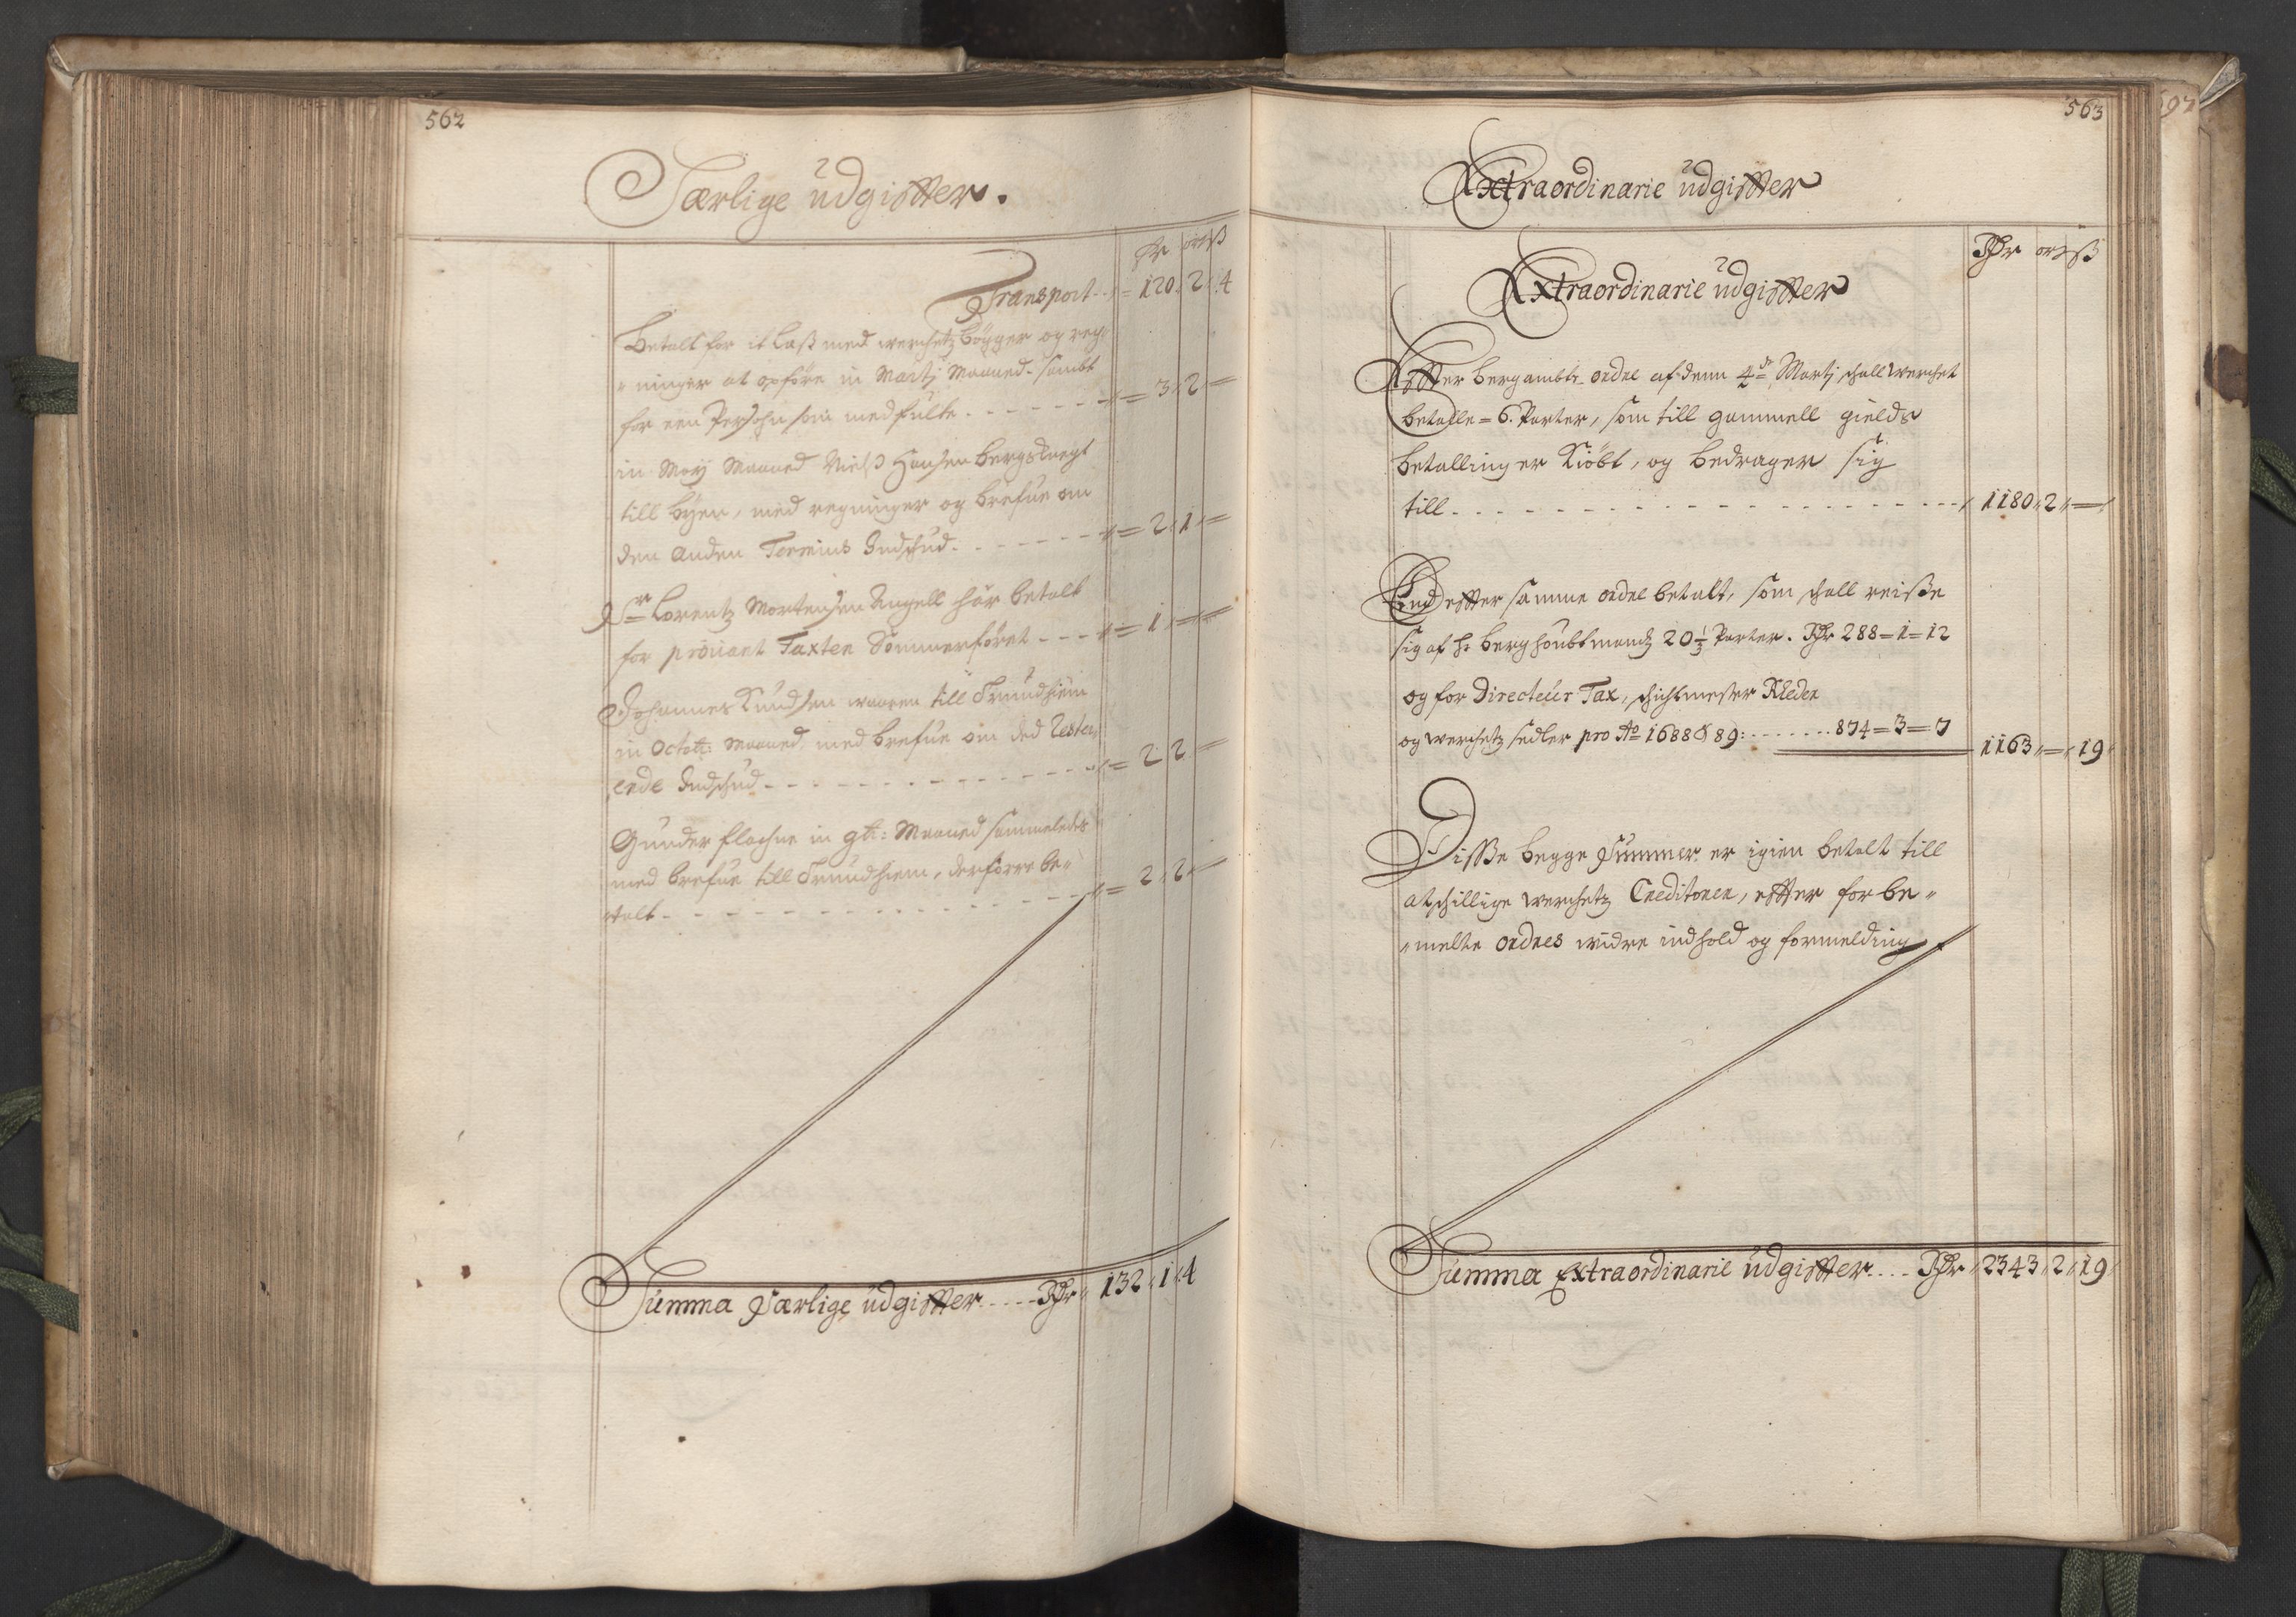 562
Særlige udgiffter.
Rdr ort ß
Transport - - = 120 " 2 " 4
Betalt for it Læß med werchetz bøgger og reg=
=ninger at opføre in Martj Maaned. sambt
for een Persohn som medfulte - - - - - - = 3 " 2 " =
in Maÿ Maaned Nielß Hansen bergsknegt
till bÿen, med regninger og brefue om
den anden Termins Indschud - - - - - - = 2 " 1 " =
Sr Lorentz Mortensen Angell har betalt
for prouiant Taxten Sommerføret - - - = 1 " = " =
Johannes Knudsen waaren till Trundhiem
in Octobr: Maaned, med brefue om ded Rester=
ende Indschud - - - - - - - - - - - = 2 " 2 " =
Gunder flachne in 9br: Maaned sammeledes
med brefue till Trundhiem, derforre be=
=talt - - - - - - - - - - - - - = 2 " 2 " =
Summa Særlige udgiffter - - - - - Rdr " 132 " 1 " 4
563
Extraordinarie udgiffter
Rdr ort ß
Extraordinarie udgiffter
Effter bergambtz ordre af denn 4de Martj schall werchet
betalle = 6. Parter, som till gammell gields
betalling er Kiøbt, og bedrager sig
till - - - - - - - - - - - - - - - - - - 1180 " 2 " =
End effter samme ordre betalt, som schall reiße
sig af Hr berghoubtmandtz 20 1/3 Parter. Rdr 288 = 1 = 12
og for Directeur Tax, schichtmester Rheder
og werchetz sedler pro Ao 1688 & 89: - - - - - - - 874 = 3 = 7
1163 " = " 19
Disse begge Summer er igien betalt till
atschillige werchetz Creditorer, effter forbe=
=melte ordres widre indhold og formelding
Summa Extraordinarie udgiffter - - - - Rdr " 2343 " 2 " 19